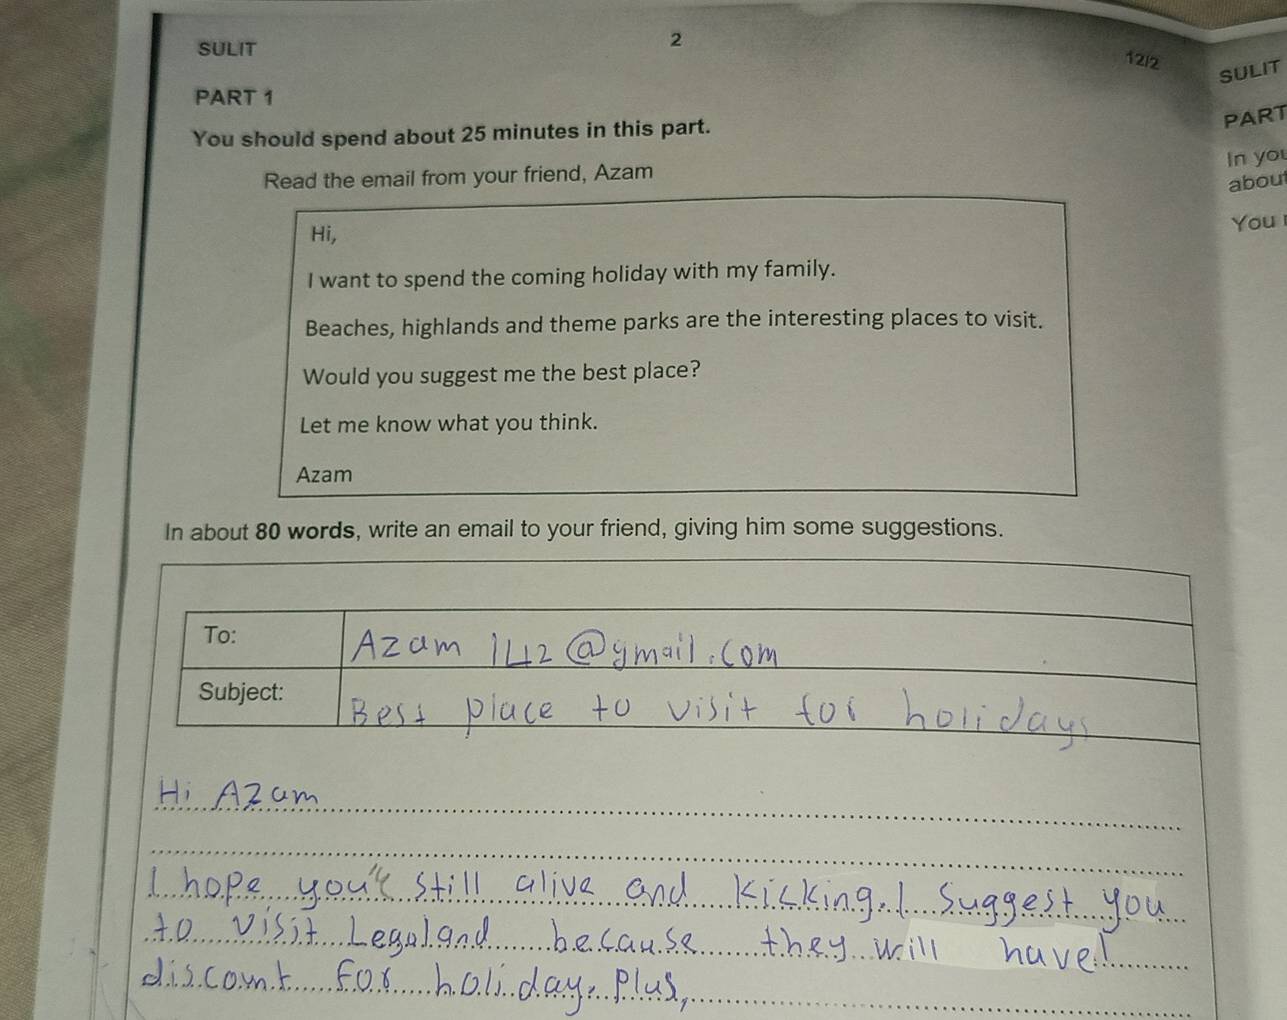 SULIT
2
12/2
PART 1
You should spend about 25 minutes in this part.
Read the email from your friend, Azam
Hi,
I want to spend the coming holiday with my family.
Beaches, highlands and theme parks are the interesting places to visit.
Would you suggest me the best place?
Let me know what you think.
Azam
In about 80 words, write an email to your friend, giving him some suggestions.
To: Azam 1412@gmail.com
Subject: Best place to visit for holidays
Hi Azam
I hope still alive and kicking. I suggest you
to visit Legoland because they will have
discount for holiday. Plus,
SULIT
PART
In you
about
You